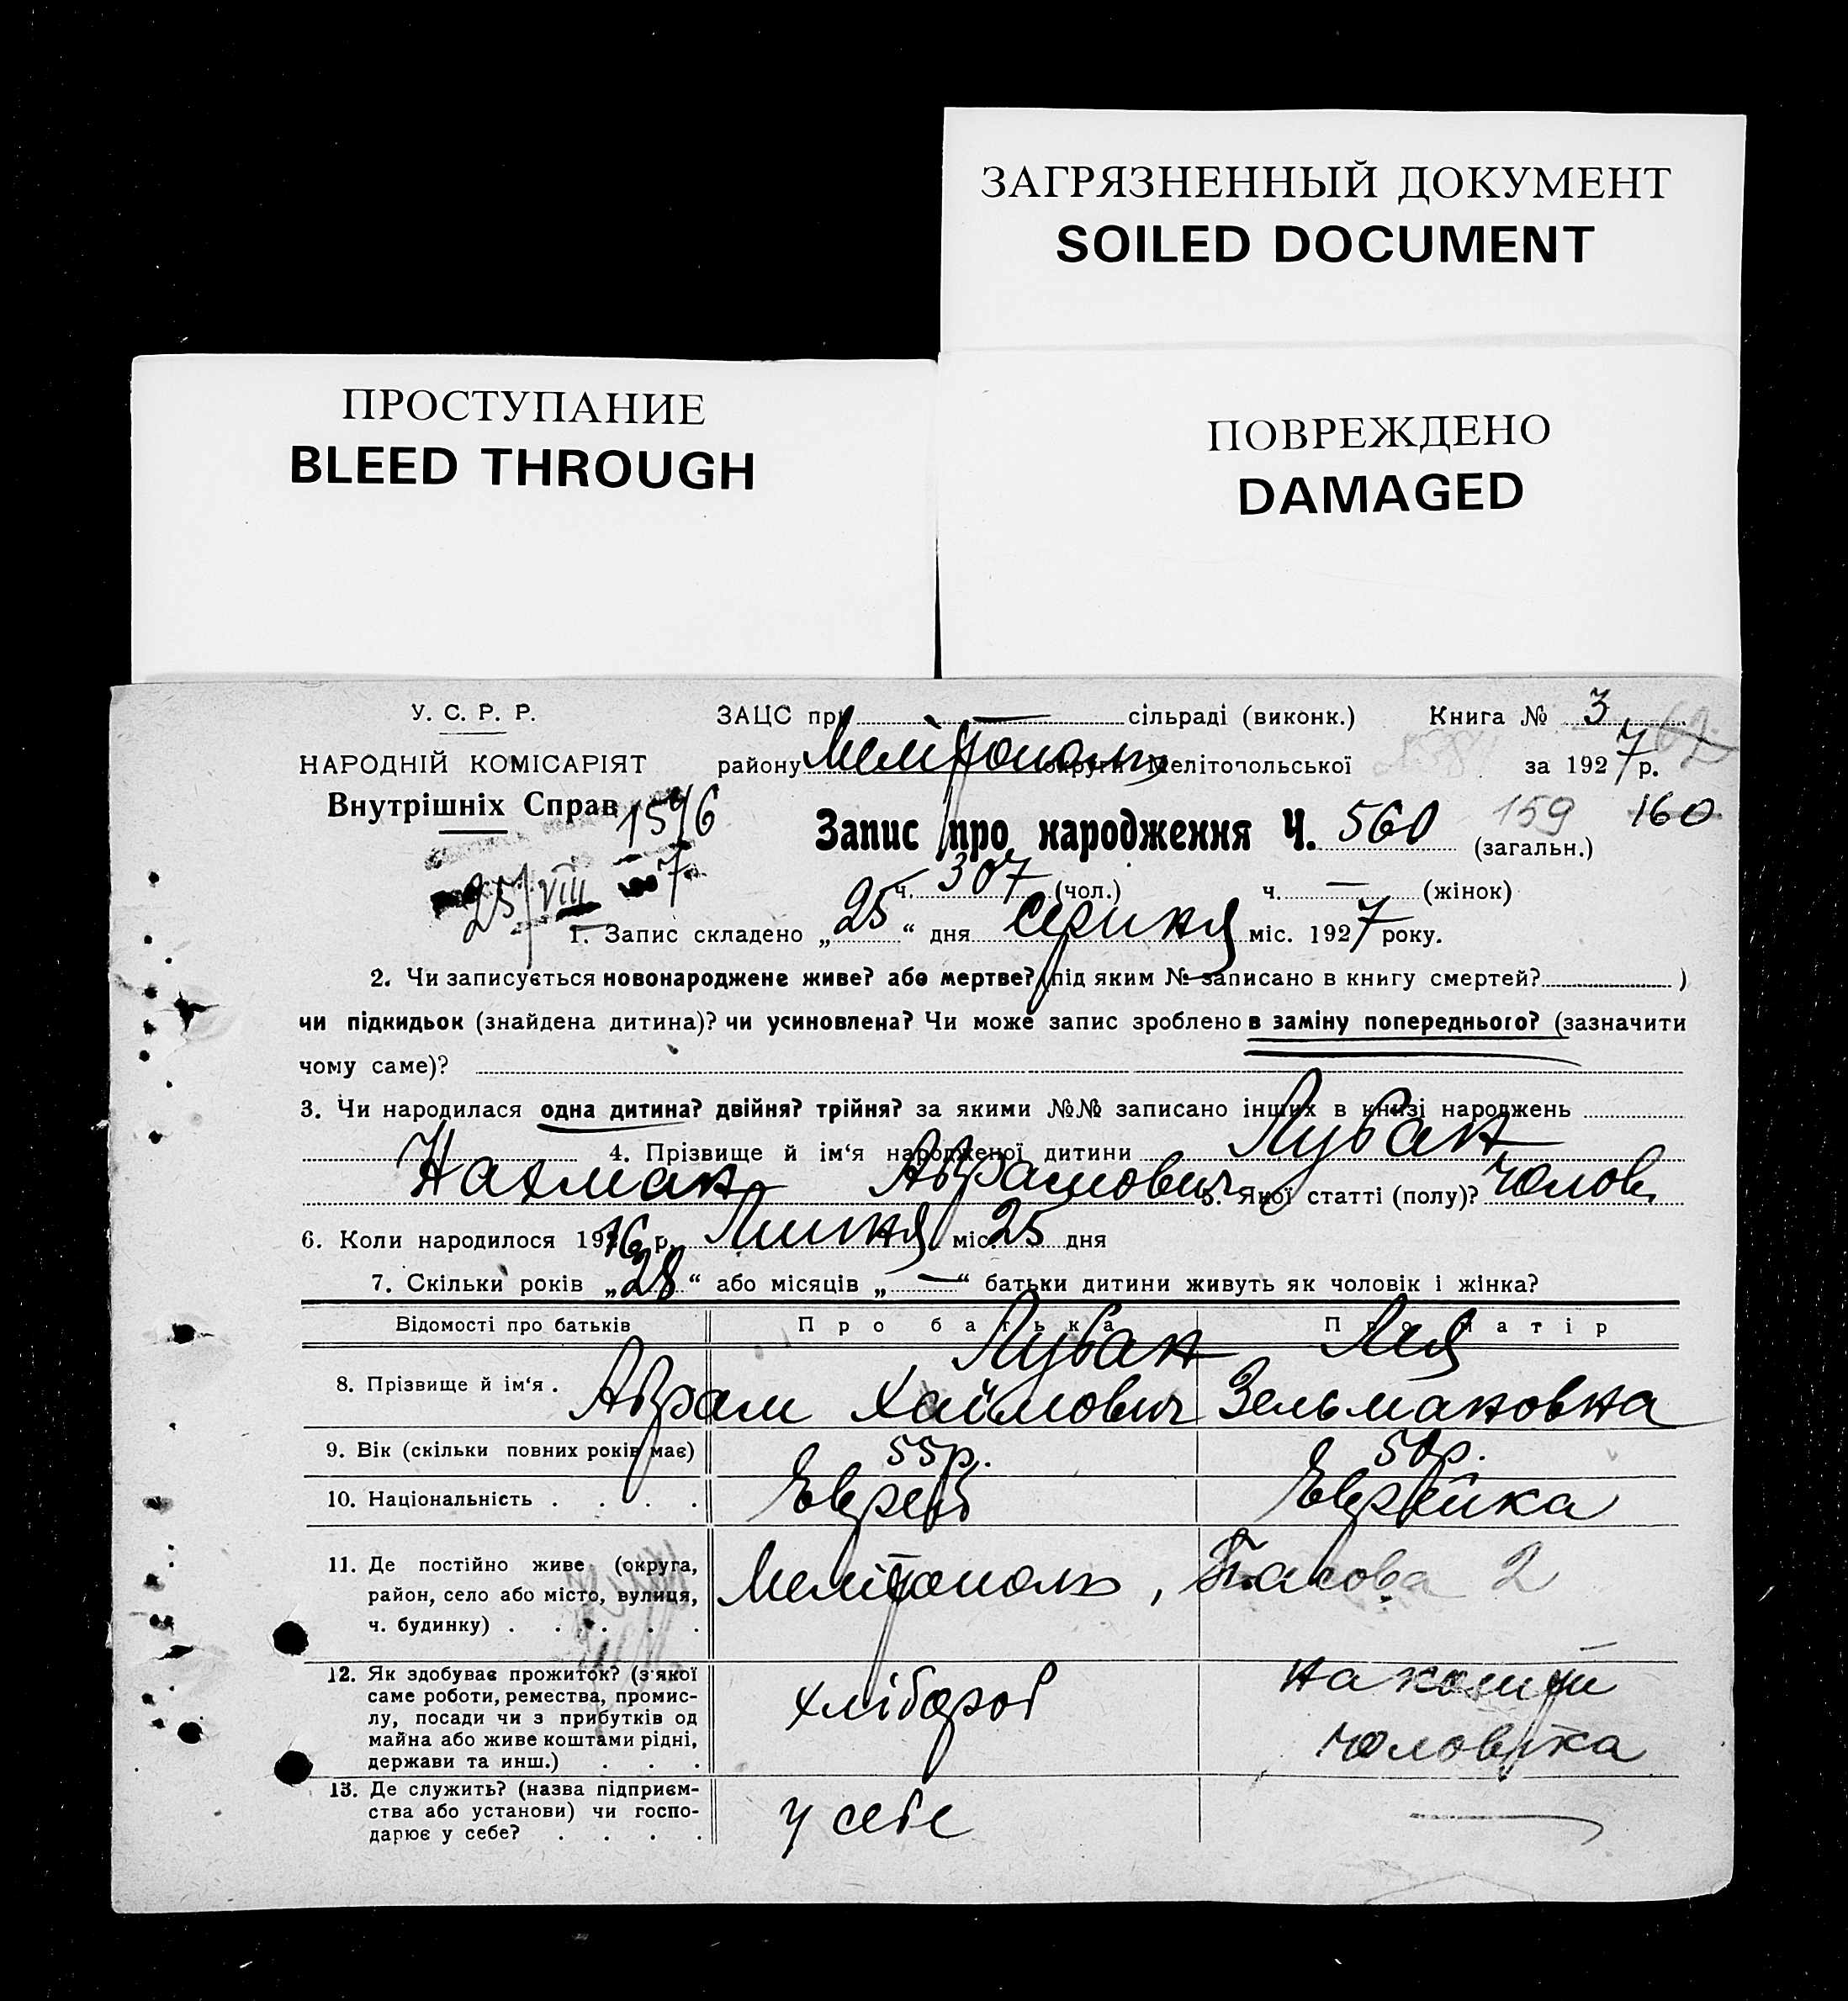 ЗАГРЯЗНЕННЫЙ ДОКУМЕНТ
SOILED DOCUMENT
ПРОСТУПАНИЕ
BLEED THROUGH
ПОВРЕЖДЕНО
DAMAGED
У. С. Р. Р.
НАРОДНІЙ КОМІСАРІЯТ
Внутрішніх Справ
1546
25/VIII 7
ЗАЦС при сільраді (виконк.) Книга № 3
району Мелітополь округи Мелітопольської за 1927 р.
Запис про народження Ч. 560 (загальн.) 159 160
ч. 307 (чол.) ч. — (жінок)
1. Запис складено „25“ дня Серпня міс. 1927 року.
2. Чи записується новонароджене живе? або мертве? (під яким № записано в книгу смертей? )
чи підкидьок (знайдена дитина)? чи усиновлена? Чи може запис зроблено в заміну попереднього? (зазначити
чому саме)?
3. Чи народилася одна дитина? двійня? трійня? за якими №№ записано інших в книзі народжень
4. Прізвище й ім‘я народженої дитини Лубан
Нахман Абрамович 5. Якої статті (полу)? Чолов.
6. Коли народилося 1916 р. Липня міс. 25 дня
7. Скільки років „28“ або місяців „—“ батьки дитини живуть як чоловік і жінка?
Відомості про батьків Про батька Про матір
8. Прізвище й ім‘я . Лубан Абрам Хаймович Лея Зельмановна
9. Вік (скільки повних років має) 55р. 50р.
10. Національність . . . . Еврей Еврейка
11. Де постійно живе (округа,
район, село або місто, вулиця,
ч. будинку) . . . . .
Мелітополь, 2
12. Як здобуває прожиток? (з якої
саме роботи, ремества, промис-
лу, посади чи з прибутків од
майна або живе коштами рідні,
держави та инш.) . . .
хлібороб на кошти
чоловіка
13. Де служить? (назва підприєм-
ства або установи) чи госпо-
дарює у себе? . . . .
у себе —